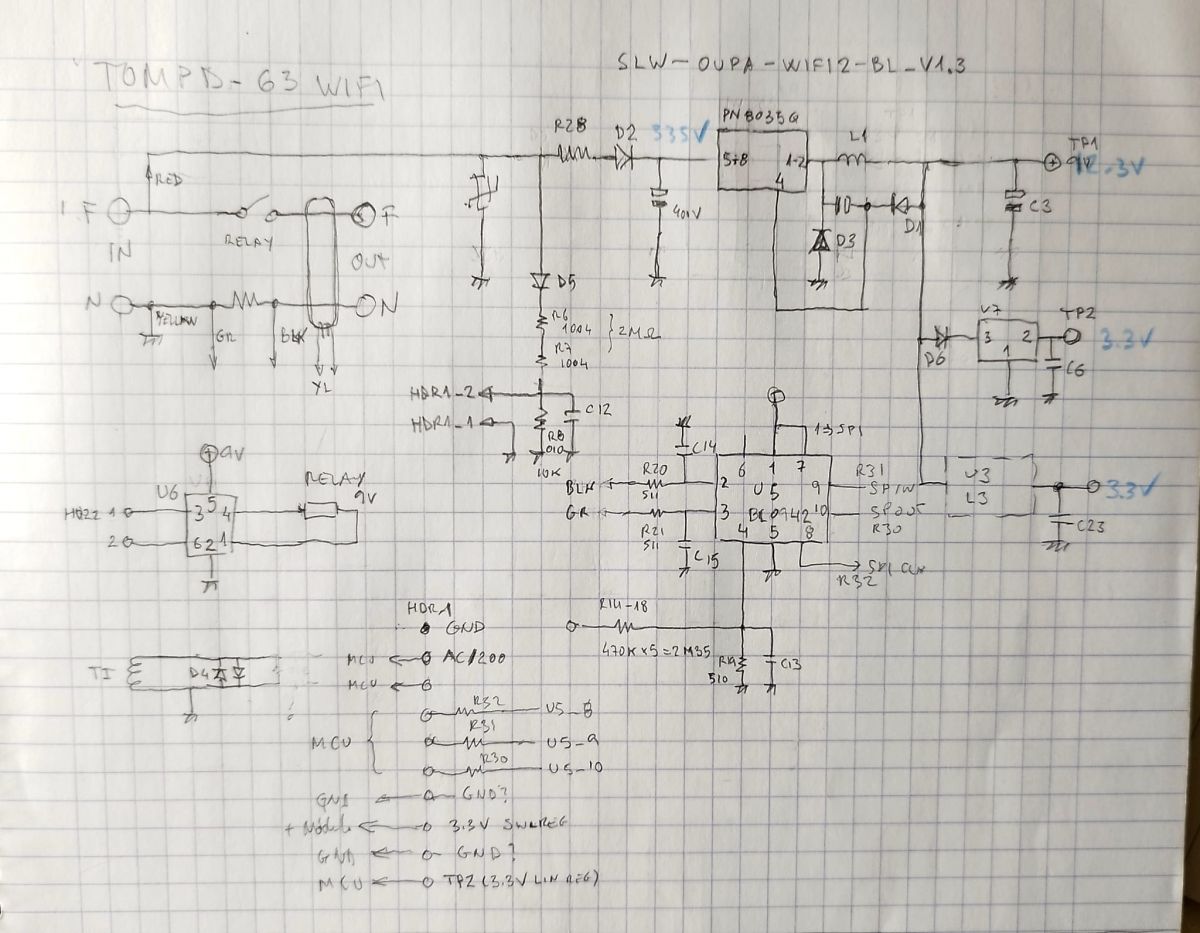 TOMPD-63 WIFI
SLW-OUPA-WIFI2-BL_V1.3
R28
D2
335V
PN8035G
L1
TP1
5÷8
1-2
4
12.3V
RED
F
F
IN
RELAY
OUT
400V
D3
D1
C3
N
N
YELLOW
GR
BLK
D5
V7
TP2
R6
1004
2MΩ
R7
1004
3
2
1
3.3V
D6
C6
YL
HDR1-2
HDR1-1
C12
R8
10K
C14
1→SP1
9V
U6
RELAY
9V
R20
511
BLK
2
6
1
7
U5
9
R31
SPIN
U3
L3
3.3V
HD22
1
3
5
4
GR
3
BL0942
10
SPOUT
R30
R21
511
2
6
2
1
4
5
8
C15
SPI CLK
R32
C23
HDR1
GND
R14-18
470K×5=2M35
R19
510
C13
TI
D4
MCU
AC/200
MCU
R32
U5-8
R31
MCU
U5-9
R30
U5-10
GND
GND?
+ Module
3.3V SW REG
GND
GND?
MCU
TP2 (3.3V LIN REG)